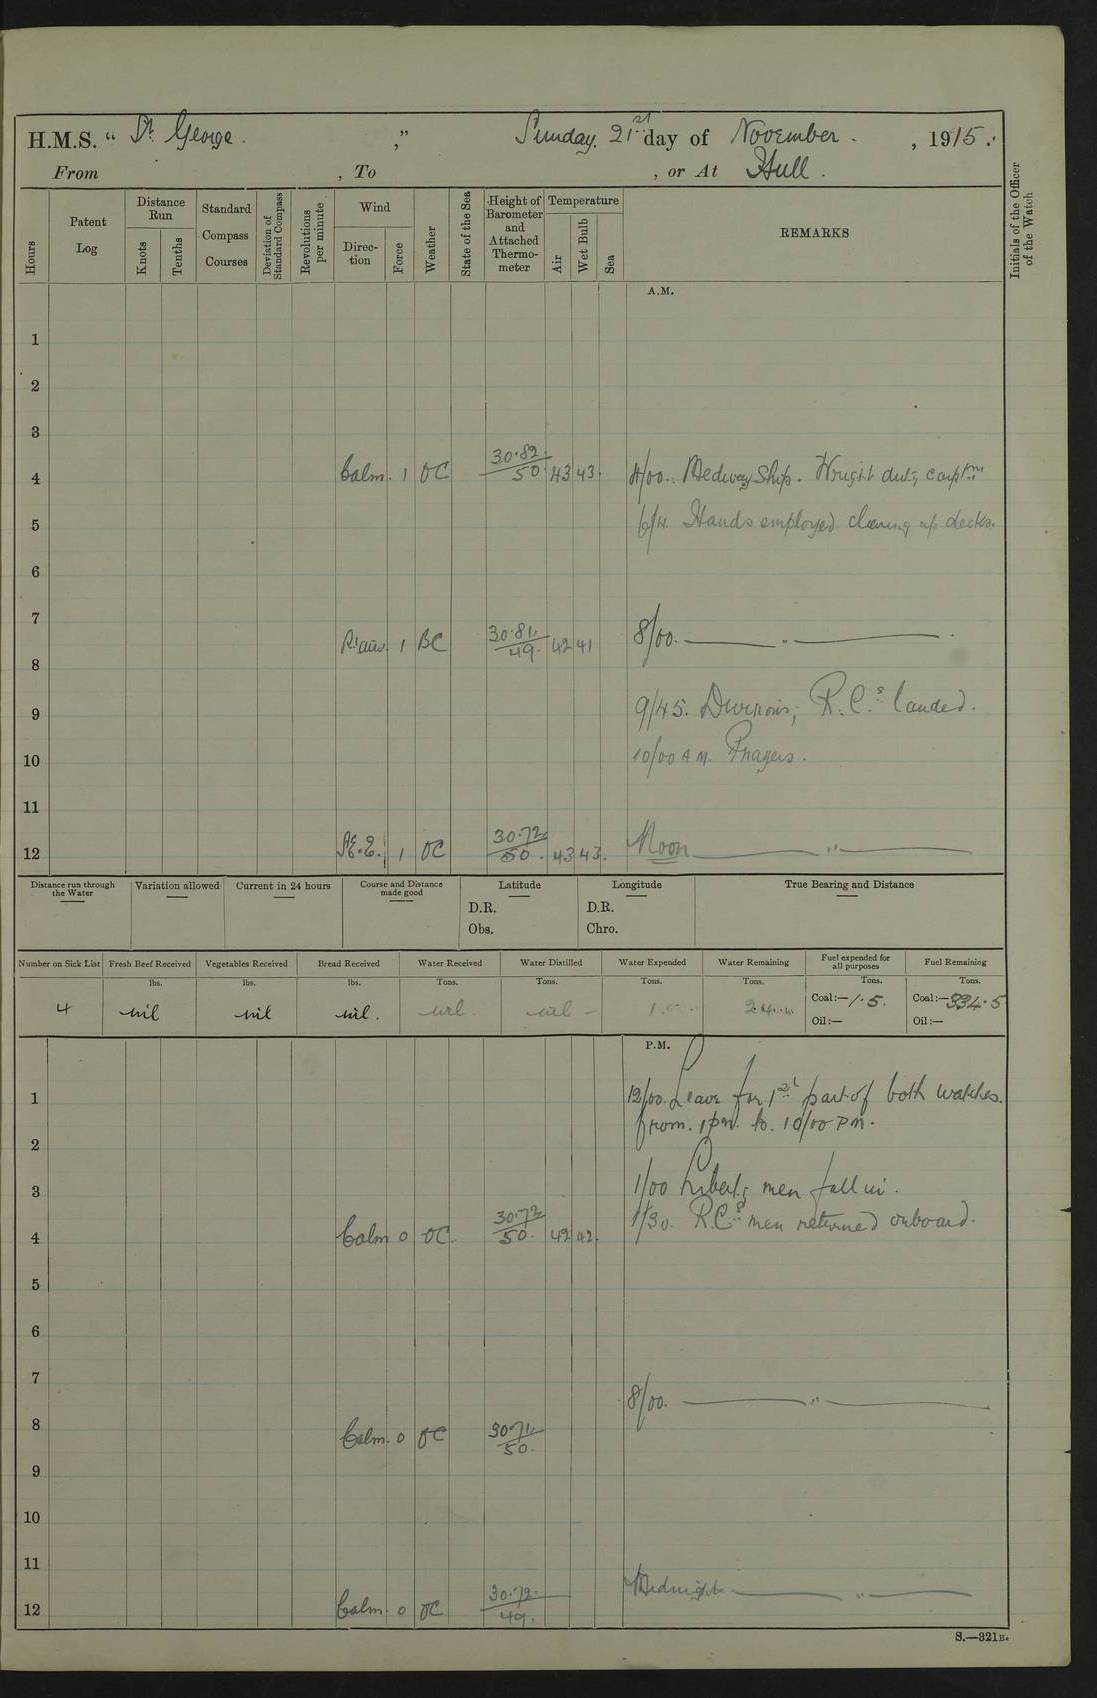 H.M.S. “ St. George. ” Sunday. 21st day of November. , 1915.
From , To , or At Hull.
Hours
Patent Log
Distance Run
Knots
Tenths
Standard Compass Courses
Deviation of Standard Compass
Revolutions per minute
Wind
Direction
Force
Weather
State of the Sea
Height of Barometer and Attached Thermometer
Temperature
Air
Wet Bulb
Sea
REMARKS
Initials of the Officer of the Watch
A.M.
1
2
3
4 Calm. 1 OC 30.82 50 43 43. 4/00. Ship. Wright duty
5 Hands employed cleaning up decks.
6
7
8 1 BC 30.81 49 42 41 8/00. — „ —
9 9/45. Divisions, R.C.s landed.
10 10/00 AM. Prayers.
11
12 1 OC 30.72 50 43 43. Noon — „ —
Distance run through the Water
Variation allowed
Current in 24 hours
Course and Distance made good
Latitude
D.R.
Obs.
Longitude
D.R.
Chro.
True Bearing and Distance
Number on Sick List
Fresh Beef Received
Vegetables Received
Bread Received
Water Received
Water Distilled
Water Expended
Water Remaining
Fuel expended for all purposes
Fuel Remaining
lbs. lbs. lbs. Tons. Tons. Tons. Tons. Tons. Tons.
4 nil nil nil. nil nil 15. Coal:—1.5. Coal:—334.5
Oil:— Oil:—
P.M.
1 12/00. Leave for 1st part of both watches.
from. 1 pm. to. 10/00 PM.
2
3 1/00 Liberty men fall in.
1/30. R.C.s men returned onboard.
4 Calm 0 OC. 30.72 50. 42 42.
5
6
7
8/00. — „ —
8 Calm. 0 OC 30.71 50.
9
10
11
Midnight — „ —
12 Calm. 0 OC 30.72. 49.
S.—321B.